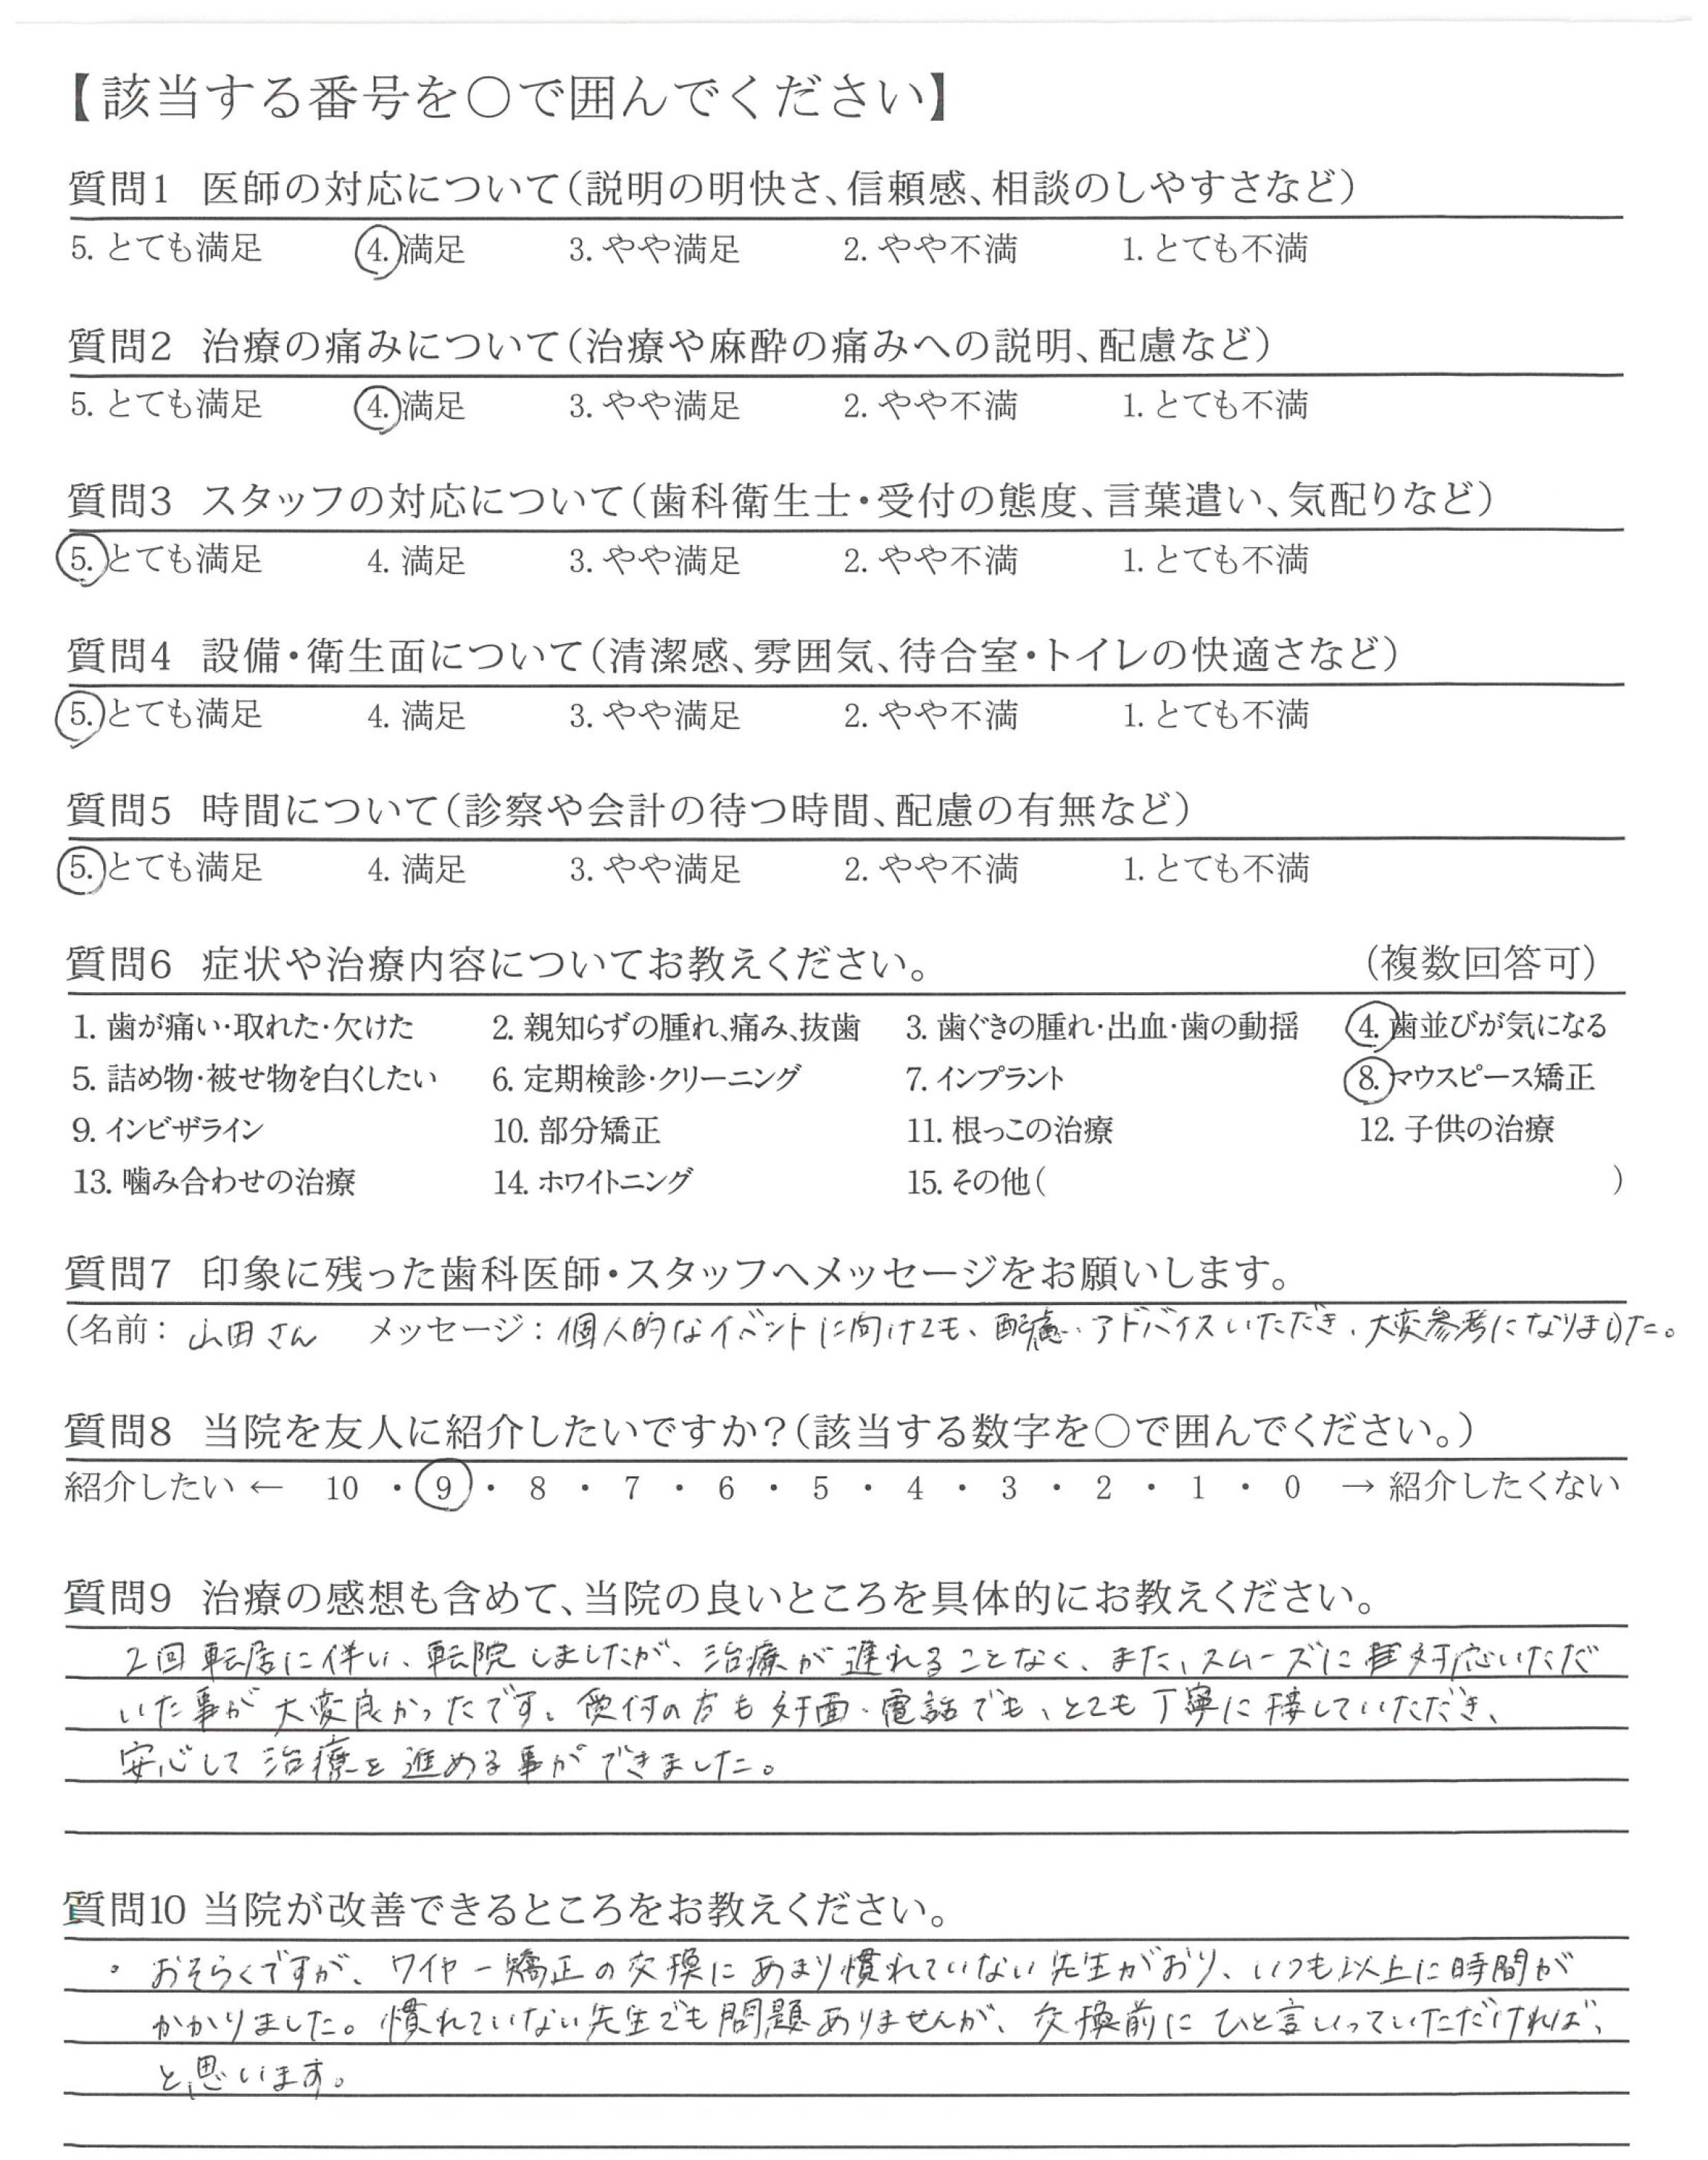 【該当する番号を○で囲んでください】
質問1 医師の対応について(説明の明快さ、信頼感、相談のしやすさなど)
5. とても満足 4. 満足 3. やや満足 2. やや不満 1. とても不満
質問2 治療の痛みについて(治療や麻酔の痛みへの説明、配慮など)
5. とても満足 4. 満足 3. やや満足 2. やや不満 1. とても不満
質問3 スタッフの対応について(歯科衛生士・受付の態度、言葉遣い、気配りなど)
5. とても満足 4. 満足 3. やや満足 2. やや不満 1. とても不満
質問4 設備・衛生面について(清潔感、雰囲気、待合室・トイレの快適さなど)
5. とても満足 4. 満足 3. やや満足 2. やや不満 1. とても不満
質問5 時間について(診察や会計の待つ時間、配慮の有無など)
5. とても満足 4. 満足 3. やや満足 2. やや不満 1. とても不満
質問6 症状や治療内容についてお教えください。 (複数回答可)
1. 歯が痛い・取れた・欠けた 2. 親知らずの腫れ、痛み、抜歯 3. 歯ぐきの腫れ・出血・歯の動揺 4. 歯並びが気になる
5. 詰め物・被せ物を白くしたい 6. 定期検診・クリーニング 7. インプラント 8. マウスピース矯正
9. インビザライン 10. 部分矯正 11. 根っこの治療 12. 子供の治療
13. 噛み合わせの治療 14. ホワイトニング 15. その他( )
質問7 印象に残った歯科医師・スタッフへメッセージをお願いします。
(名前: 山田さん メッセージ: 個人的なイベントに向けても、配慮・アドバイスいただき、大変参考になりました。
質問8 当院を友人に紹介したいですか?(該当する数字を○で囲んでください。)
紹介したい ← 10 ・ 9 ・ 8 ・ 7 ・ 6 ・ 5 ・ 4 ・ 3 ・ 2 ・ 1 ・ 0 → 紹介したくない
質問9 治療の感想も含めて、当院の良いところを具体的にお教えください。
2回転居に伴い、転院しましたが、治療が遅れることなく、また、スムーズに対応いただ
いた事が大変良かったです。受付の方も対面・電話でも、とても丁寧に接していただき、
安心して治療を進める事ができました。
質問10 当院が改善できるところをお教えください。
・おそらくですが、ワイヤー矯正の交換にあまり慣れていない先生がおり、いつも以上に時間が
かかりました。慣れていない先生でも問題ありませんが、交換前にひと言いっていただければ、
と思います。